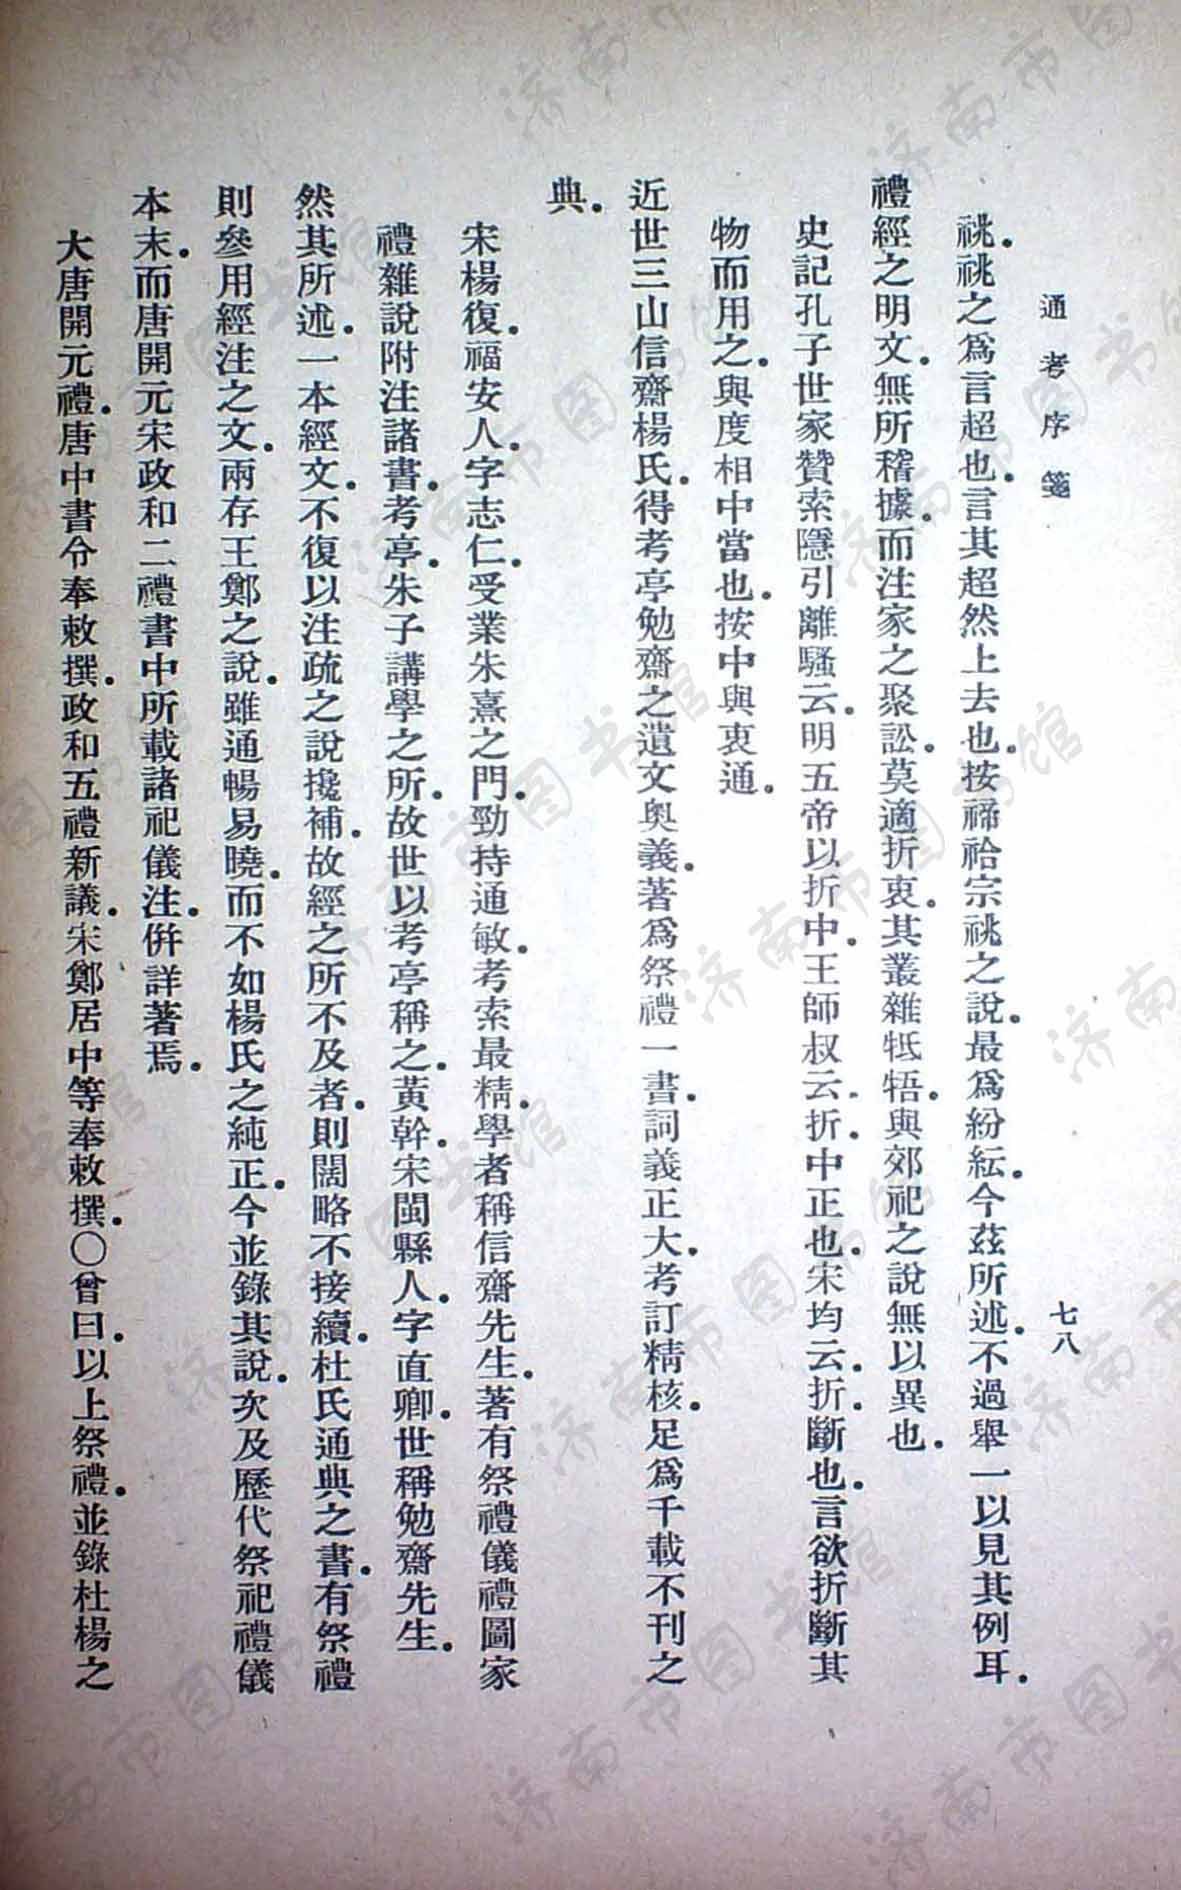 通考序箋
七八
祧.祧之爲言超也.言其超然上去也.按禘祫宗祧之說.最爲紛紜.今茲所述.不過舉一以見其例耳.
禮經之明文.無所稽據.而注家之聚訟.莫適折衷.其叢雜牴牾.與郊祀之說無以異也.
史記孔子世家贊索隱引離騷云.明五帝以折中.王師叔云.折.中正也.宋均云.折.斷也.言欲折斷其
物而用之.與度相中當也.按中與衷通.
近世三山信齋楊氏.得考亭勉齋之遺文奧義.著爲祭禮一書.詞義正大.考訂精核.足爲千載不刊之
典.
宋楊復.福安人.字志仁.受業朱熹之門.勁持通敏.考索最精.學者稱信齋先生.著有祭禮儀禮圖家
禮雜說附注諸書.考亭.朱子講學之所.故世以考亭稱之.黃幹.宋閩縣人.字直卿.世稱勉齋先生.
然其所述.一本經文.不復以注疏之說攙補.故經之所不及者.則闊略不接續.杜氏通典之書.有祭禮
則參用經注之文.兩存王鄭之說.雖通暢易曉.而不如楊氏之純正.今並錄其說.次及歷代祭祀禮儀
本末.而唐開元宋政和二禮書中所載諸祀儀注.併詳著焉.
大唐開元禮.唐中書令奉敕撰.政和五禮新議.宋鄭居中等奉敕撰.○曾曰.以上祭禮.並錄杜楊之
济南市图书馆